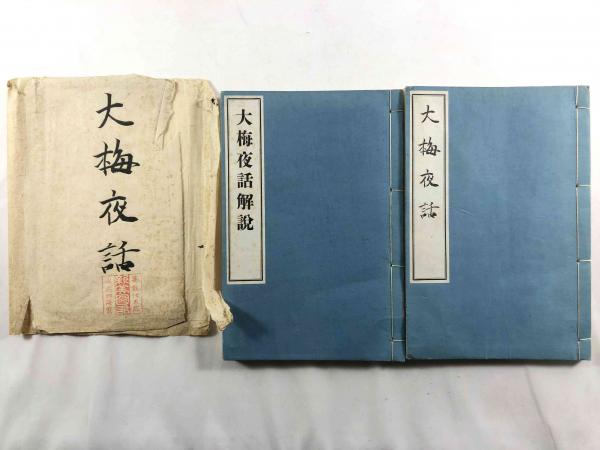 大梅夜話
大梅夜話解說
大梅夜話